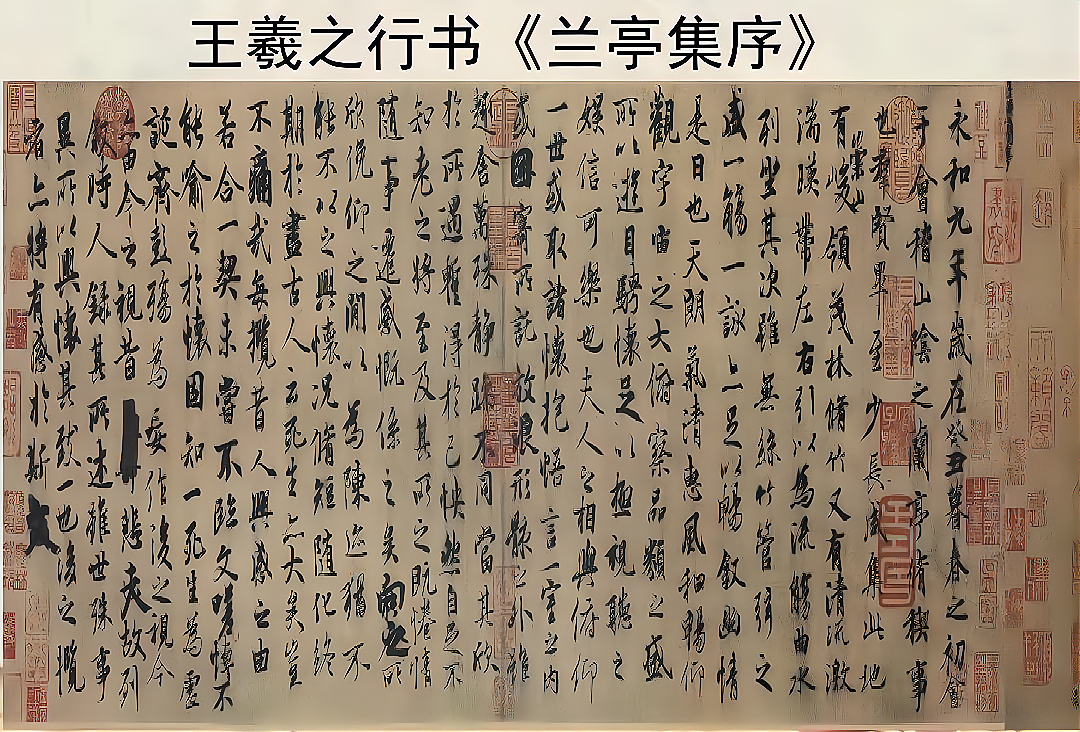 王羲之行书《兰亭集序》
永和九年歲在癸丑暮春之初會
于會稽山陰之蘭亭脩稧事
也羣賢畢至少長咸集此地
有崇山峻領茂林脩竹又有清流激
湍暎帶左右引以為流觴曲水
列坐其次雖無絲竹管弦之
盛一觴一詠亦足以暢敘幽情
是日也天朗氣清惠風和暢仰
觀宇宙之大俯察品類之盛
所以遊目騁懷足以極視聽之
娛信可樂也夫人之相與俯仰
一世或取諸懷抱悟言一室之內
或因寄所託放浪形骸之外雖
趣舍萬殊靜躁不同當其欣
於所遇蹔得於己怏然自足不
知老之將至及其所之既惓情
隨事遷感慨係之矣向之所
欣俛仰之間以為陳迹猶不
能不以之興懷況脩短隨化終
期於盡古人云死生亦大矣豈
不痛哉每攬昔人興感之由
若合一契未嘗不臨文嗟悼不
能喻之於懷固知一死生為虛
誕齊彭殤為妄作後之視今
亦由今之視昔悲夫故列
敘時人錄其所述雖世殊事
異所以興懷其致一也後之攬
者亦將有感於斯文